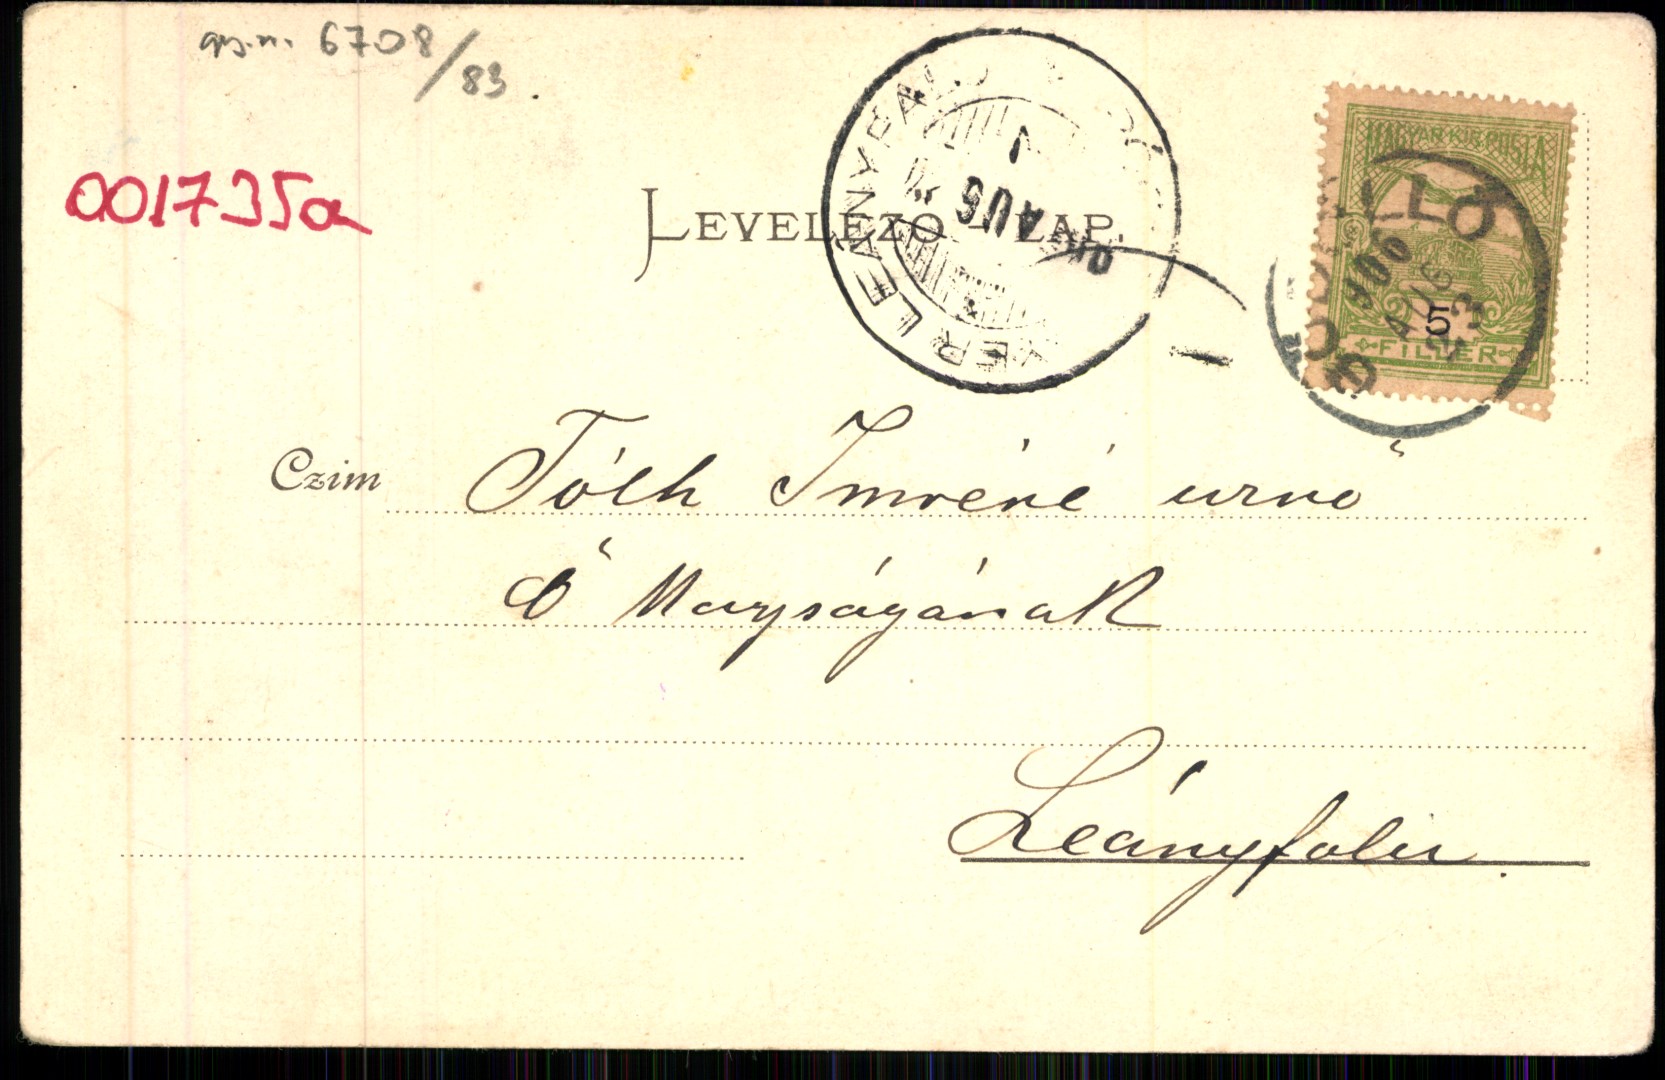 gy.n. 6708/83.
001735a
LEVELEZŐ-LAP.
LEÁNYFALU
AUG
MAGYAR KIR. POSTA
GÖDÖLLŐ
906
AUG
23
5
FILLER
Czim Tóth Imréné urnő
Ő Nagyságának
Leányfalu